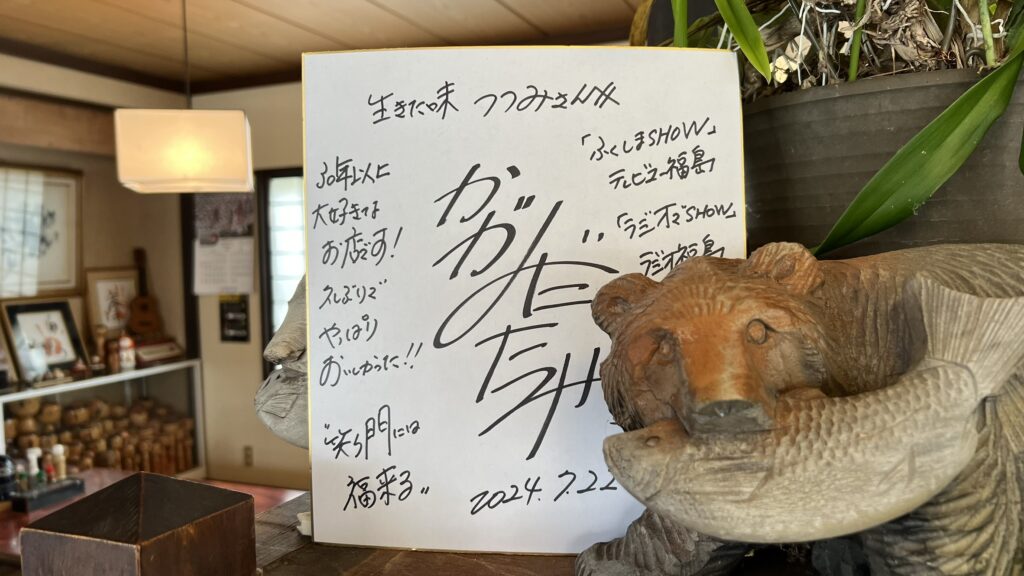 生きた味 つつみさんへ
「ふくしまSHOW」
テレビユー福島
「ラジオでSHOW」
ラジオ福島
かがみだ
たつや
30年以上
大好きな
お店です!
久しぶりで
やっぱり
おいしかった!!
"笑う門には
福来る"
2024.7.22